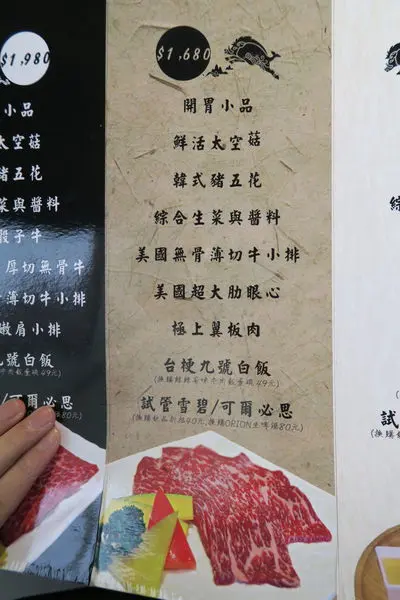 $1,980
小品
太空菇
豬五花
菜與醬料
骰子牛
厚切無骨牛
薄切牛小排
嫩肩小排
九號白飯
/可爾必思
$1,680
開胃小品
鮮活太空菇
韓式豬五花
綜合生菜與醬料
美國無骨薄切牛小排
美國超大肋眼心
極上翼板肉
台梗九號白飯
試管雪碧/可爾必思
(換購飲品折抵40元,換購ORION生啤酒80元)
綜
試